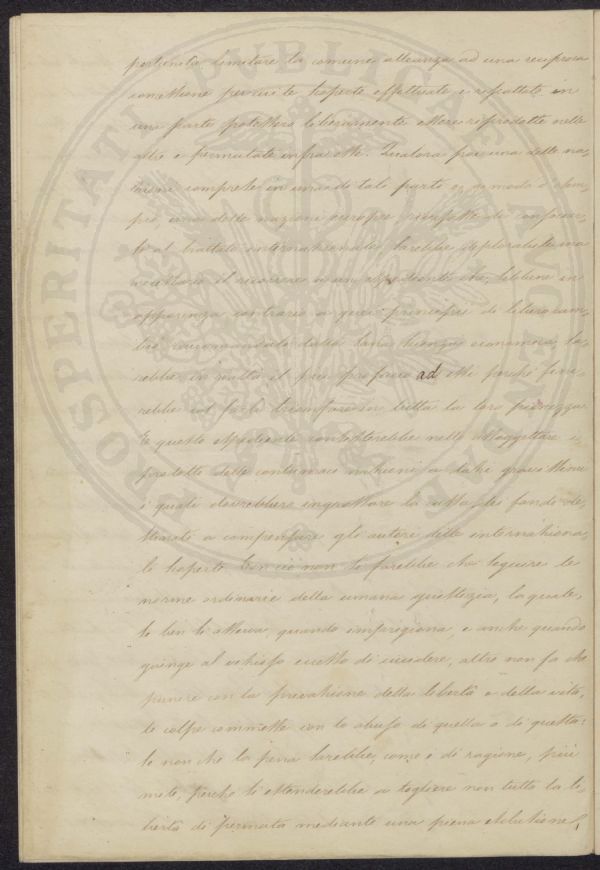 portunità limitare la comune alleanza ad una reciproca
connessione per cui le scoperte effettuate e rispettate in
una parte potessero liberamente essere riprodotte nelle
altre e permutate infra esse. Qualora poi una delle na,
zioni comprese in una di tali parti or, a modo d'esem,
pio, una delle nazioni europee, recusasse di confor
si al trattato internazionale, sarebbe deplorabile ma
necessario il ricorrere a un espediente che, sebbene in
apparenza contrario a quei principii di libero cam,
bio raccomandato dalla sana scienza economica, sa,
rebbe in quella il più proficuo ad essi perché fini,
rebbe col farli trionfare in tutta la loro pienezza.
E questo espediente consisterebbe nello assoggettare i
prodotti delle contumaci nazioni a dazi gravissimi
i quali dovrebbero ingrossare la cassa dei fondi de,
stinati a compensare gli autori delle internaziona,
li scoperte. Con ciò non si farebbe che seguire le
norme ordinarie della umana giustizia, la quale,
se ben si osserva, quando imprigiona, e anche quando
giunge al eccesso di uccidere, altro non fa che
punire con la privazione della libertà o della vita,
le colpe commesse con lo abuso di quella o di questa:
se non che la pena sarebbe, come è di ragione, più
mite, perché si estenderebbe a togliere non tutta la li,
bertà di permuta mediante una piena esclusione,
PROSPERITATI PUBLICAE AUGENDAE